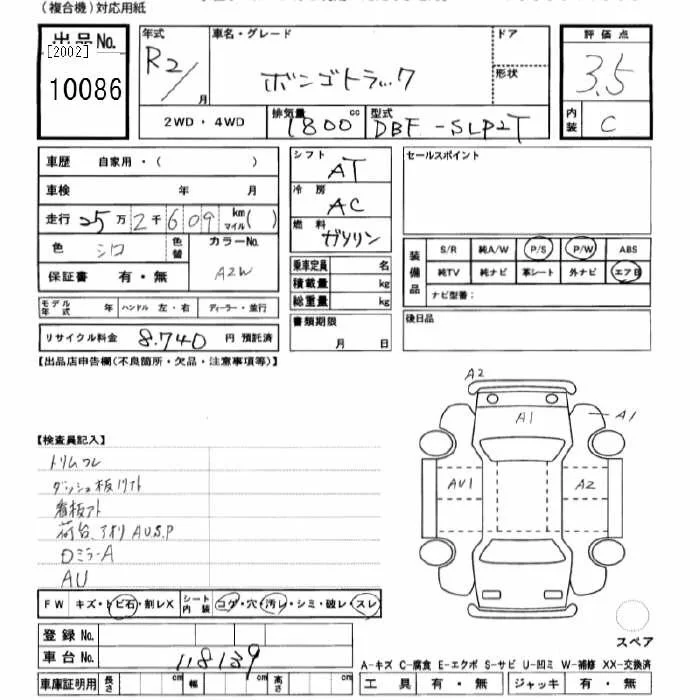 (複合機)対応用紙
出品No.
[2002]
10086
年式 R2/ 月
車名・グレード ボンゴトラック
ドア
形状
評価点 3.5
内装 C
2WD・4WD
排気量 1800 cc
型式 DBF-SLP2T
車歴 自家用・( )
車検 年 月
走行 25万2千609 km マイル( )
色 シロ 色替 カラーNo. A2W
保証書 有・無
モデル年式 年 ハンドル 左・右 ディーラー・並行
リサイクル料金 8.740 円 預託済
シフト AT
冷房 AC
燃料 ガソリン
乗車定員 名
積載量 kg
総重量 kg
書類期限
月 日
セールスポイント
装備品
S/R 純A/W P/S P/W ABS
純TV 純ナビ 革シート 外ナビ エアB
ナビ型番:
後日品
【出品店申告欄(不良箇所・欠品・注意事項等)】
【検査員記入】
トリムワレ
ダッシュ板リフト
看板アト
荷台、アオリAU.S.P
ロミラーA
AU
A2
A1
A1
AU1
A2
FW キズ・トビ石・割レX
シート内装 コゲ・穴・汚レ・シミ・破レ・スレ
登録No.
車台No. 118139
車庫証明用 長さ cm 幅 cm 高さ cm
スペア
A-キズ C-腐食 E-エクボ S-サビ U-凹ミ W-補修 XX-交換済
工具 有・無 ジャッキ 有・無